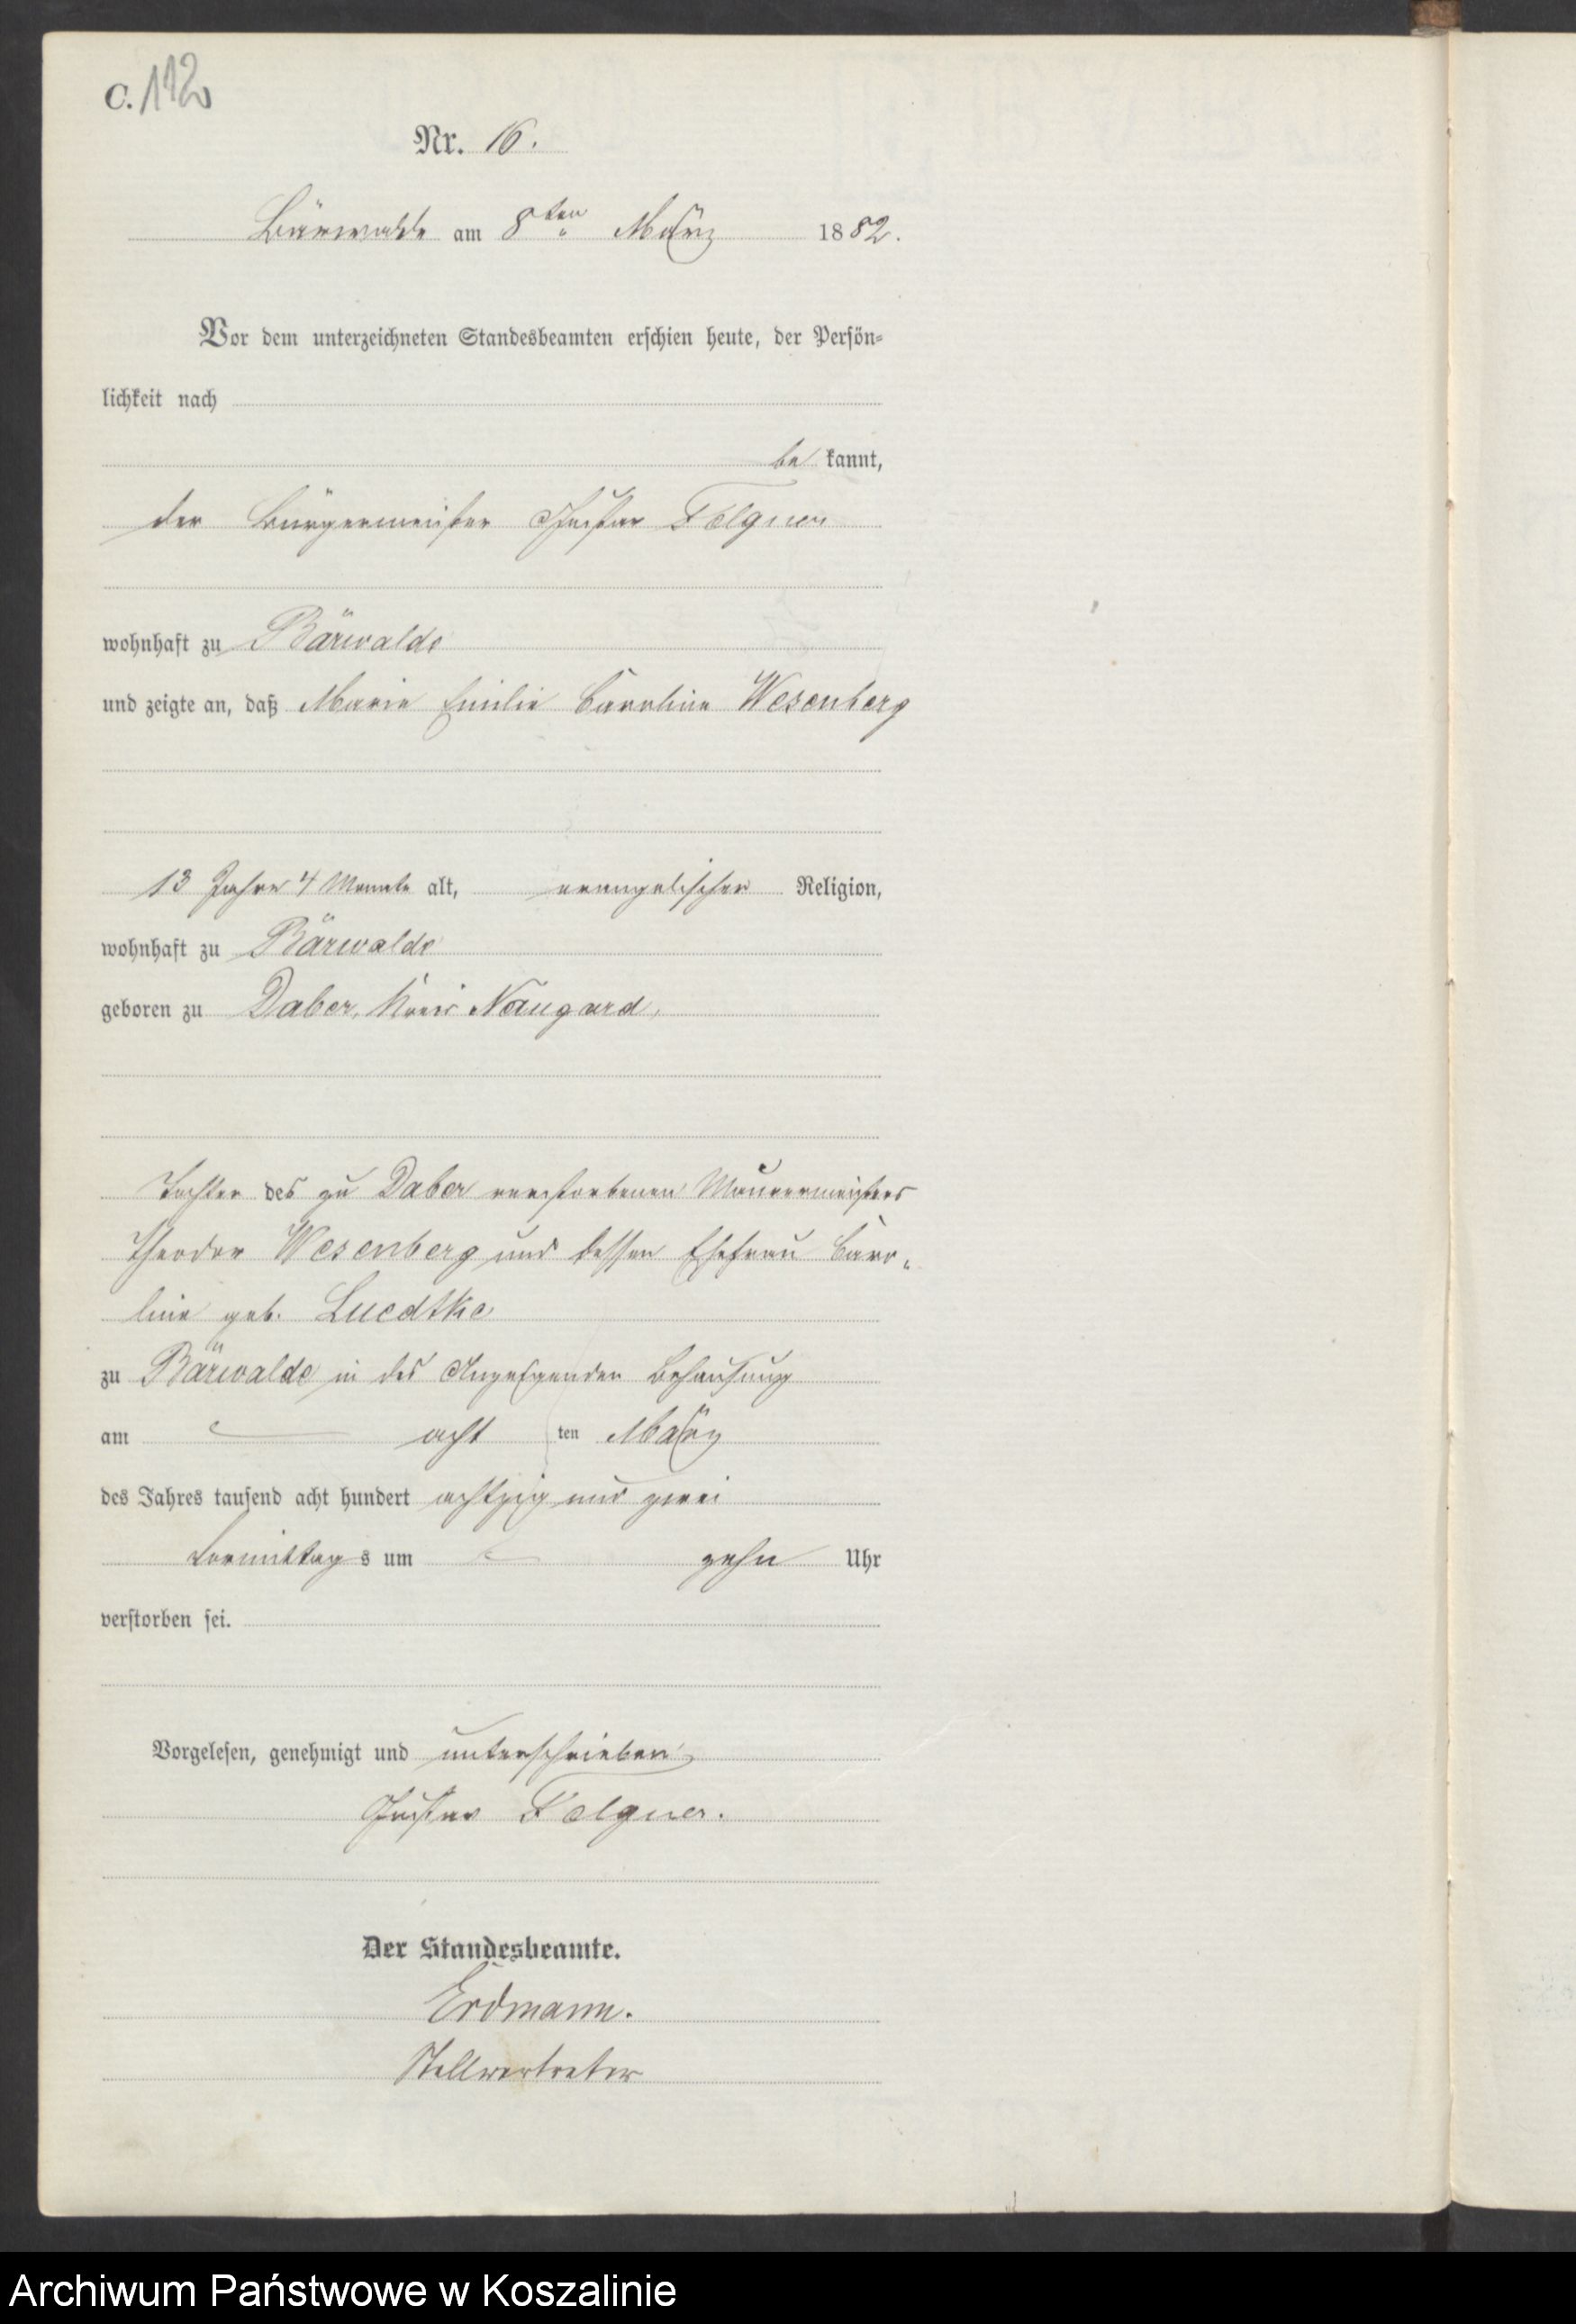 C. 112
Nr. 16.
Bärwalde am 8ten März 1882.
Vor dem unterzeichneten Standesbeamten erschien heute, der Persön-
lichkeit nach
be kannt,
der Bürgermeister Gustav Folgner
wohnhaft zu Bärwalde
und zeigte an, daß Marie Emilie Caroline Wesenberg
13 Jahre 4 Monate alt, evangelischer Religion,
wohnhaft zu Bärwalde
geboren zu Daber, Kreis Naugard,
Tochter des zu Daber verstorbenen Maurermeisters
Theodor Wesenberg und dessen Ehefrau Caro-
line geb. Luedtke
zu Bärwalde in des Anzeigenden Behausung
am acht ten März
des Jahres tausend acht hundert achtzig und zwei
Vormittag s um zehn Uhr
verstorben sei.
Vorgelesen, genehmigt und unterschrieben
Gustav Folgner.
Der Standesbeamte.
Erdmann.
Stellvertreter
Archiwum Państwowe w Koszalinie